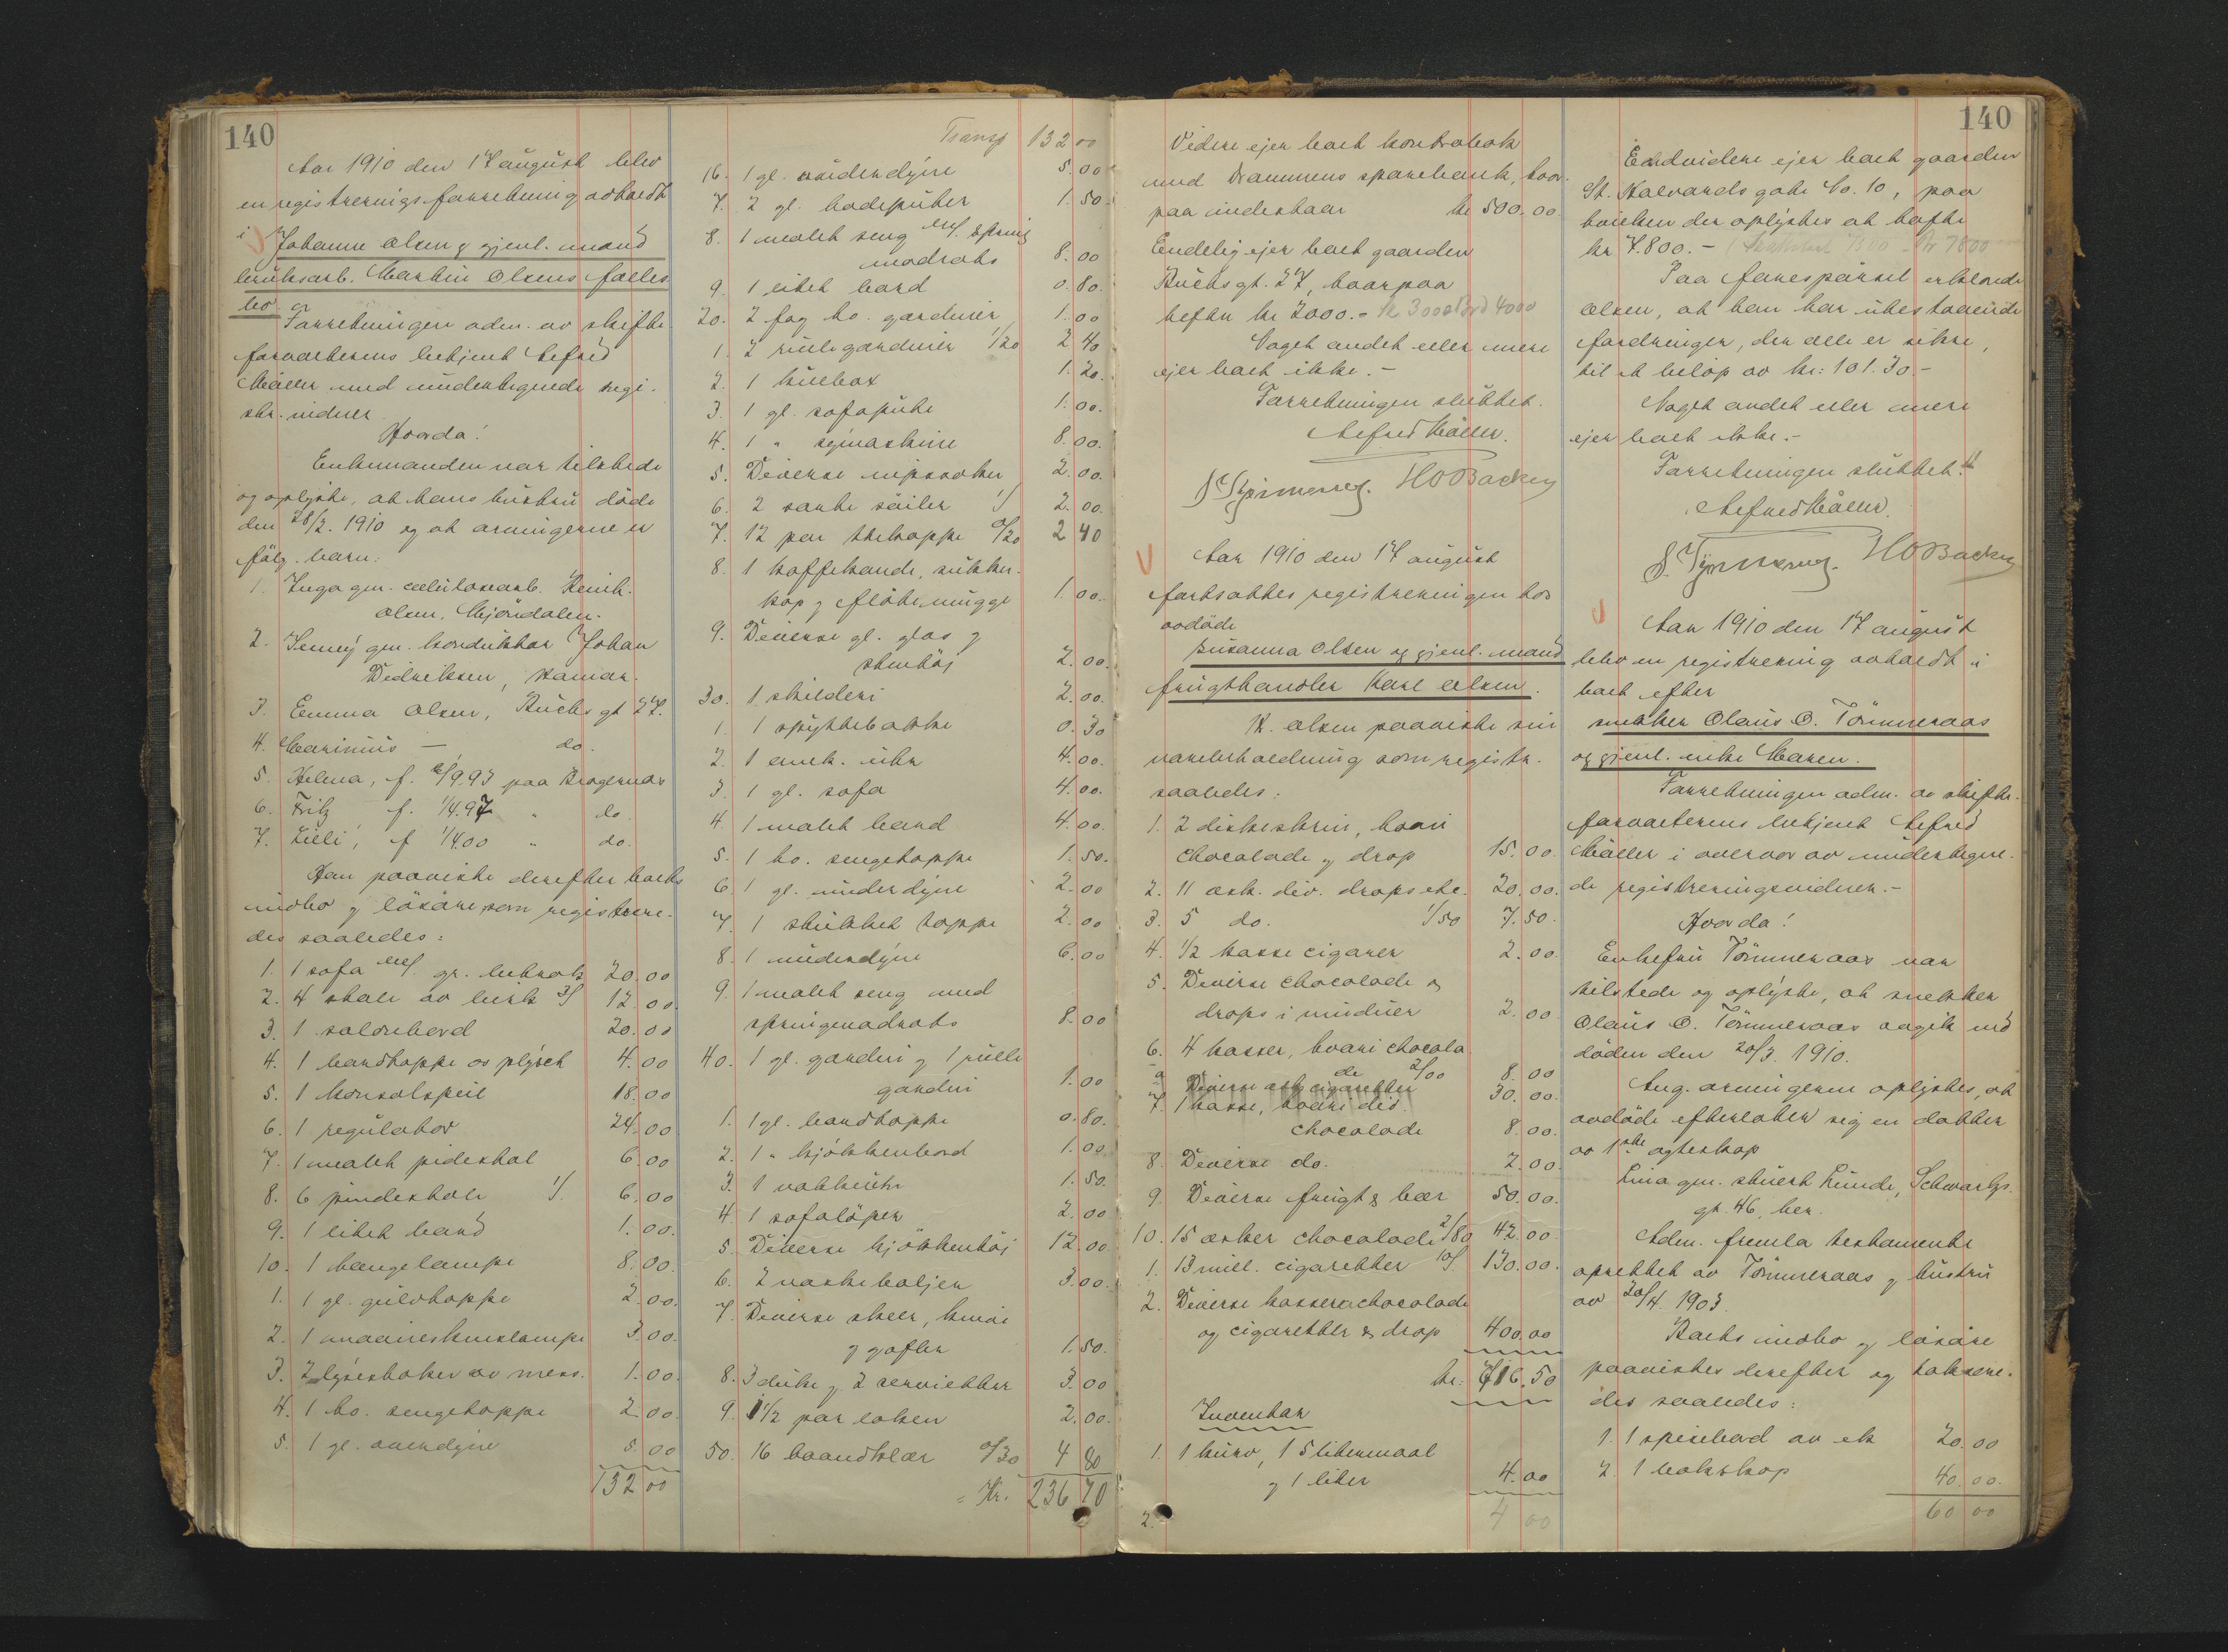 140
Aar 1910 den 17 august blev
en registreringsforretning avholdt
i Johanne Olsen & gjenl. mand
bruksarb. Martin Olsens fælles
bo
Forretningen adm. av skifte
forvalterens betjent Alfred
Møller med undertegnede regi-
str. vidner.
Hvorda!
Enkemanden var tilstede
og oplyste, at hans hustru døde
den 28/2. 1910 og at arvingerne er
følg. barn:
1. Inga gm. celulosearb. Henrik
Olsen, Mjøndalen.
2. Jenny gm. konduktør Johan
Diedriksen, Hamar.
3. Emma Olsen, Buchs gt 27.
4. Marinius — do.
5. Helena, f. 6/9.93 paa Bragernæs
6. Fritz f. 1/4.97 " do.
7. Lilli, f 1/4.00 " do.
Han paaviste derefter boets
indbo & løsøre som registrere-
des saaledes:
1. 1 sofa m/. gr. betræk 20.00
2. 4 stole av birk 3/ 12.00.
3. 1 salonbord 20.00
4. 1 bordteppe av plysch 4.00
5. 1 konsolspeil 18.00
6. 1 regulator 24.00
7. 1 malet pidestal 6.00
8. 6 pindestole 1/. 6.00
9. 1 litet bord 1.00.
10. 1 hængelampe 8.00.
1. 1 gl. gulvteppe 2.00.
2. 1 lampe 3.00.
3. 2 lysestaker av mess. 1.00.
4. 1 ho. sengeteppe 2.00.
5. 1 gl. overdyne 5.00
132 00
Transp 132 00
16. 1 gl. underdyne 5.00
7. 2 gl. hodeputer 1.50.
8. 1 malet seng m/. spring
madrats 8.00
9. 1 litet bord 0.80.
20. 2 fag ho. gardiner 1.00
1. 2 rullegardiner 1/20 2 40
2. 1 1.20.
3. 1 gl. sofapute 1.00.
4. 1 " symaskine 8.00.
5. Diverse nipssaker 2.00.
6. 2 sorte søiler 1/ 2.00.
7. 12 par thekopper 0/20 2 40
8. 1 kaffekande, sukker-
kop & fløtemugge 1.00.
9. Diverse gl. glas &
stentøi 2.00.
30. 1 skilderi 2.00.
1. 1 spyttebakke 0.30
2. 1 amk. uhr 4.00.
3. 1 gl. sofa 4.00.
4. 1 malet bord 4.00.
5. 1 ho. sengeteppe 1.50.
6. 1 gl. underdyne 2.00
7. 1 stukket teppe 2.00
8. 1 underdyne 6.00
9. 1 malet seng med
springmadrats 8.00
40. 1 gl. gardin & 1 rulle
gardin 1.00
1. 1 gl. bordteppe 0.80.
2. 1 " kjøkkenbord 1.00
3. 1 vækkeuhr 1.50.
4. 1 sofaløper 2.00
5. Diverse kjøkkentøi 12.00.
6. 2 vaskebaljer 3.00.
7. Diverse skeer, knive
& gafler 1.50.
8. 3 duke & 2 servietter 3.00
9. 1 1/2 par laken 2.00.
50. 16 haandklær 0/30 4 80
= Kr. 236 70
Videre ejer boet kontrabok
med Drammens sparebank, hvor-
paa indestaar kr 500.00
Endelig ejer boet gaarden
Buchs gt. 27, hvorpaa
hefter kr 2000.- kr 3000 Brd 4000
Noget andet eller mere
ejer boet ikke.-
Forretningen sluttet.
Alfred Møller.
HOBacken
Aar 1910 den 17 august
fortsattes registreringen hos
avdøde
Susanna Olsen og gjenl. mand
frugthandler Karl Olsen.
K. Olsen paaviste sin
varebeholdning som registr.
saaledes:
1. 2 diskeskrin, hvori
chocolade & drop 15.00.
2. 11 æsk. div. drops etc. 20.00.
3. 5 do. 1/50 7.50.
4. 1/2 kasse cigarer 2.00.
5. Diverse chocolade &
drops i vinduer 2.00
6. 4 kasser, hvori chocola
de 2/00 8.00
Diverse æsk cigaretter 30.00.
7. 1 kasse, hvori div.
chocolade 8.00.
8. Diverse do. 2.00.
9. Diverse frugt & bær 50.00.
10. 15 æsker chocolade 2/80 42.00
1. 13 mill. cigaretter 10/. 130.00.
2. Diverse kasser chocolade
og cigaretter & drop 400.00
kr. 716.50
Inventar
1. 1 kurv, 1 5 litermaal
& 1 liter 4.00
4 00
2.
140
Endvidere ejer boet gaarden
St. Halvards gate No. 10, paa
hvilken der oplystes at hefte
kr 7.800.-
Paa forespørsel erklærede
Olsen, at han har utestaaende
fordringer, der alle er sikre,
til et beløp av kr: 101.30.-
Noget andet eller mere
ejer boet ikke.-
Forretningen sluttet.
Alfred Møller.
HOBacken
Aar 1910 den 17 august
blev en registrering avholdt i
boet efter
snekker Olaus O. Tømmeraas
og gjenl. enke Maren.
Forretningen adm. av skifte-
forvalterens betjent Alfred
Møller i overvær av undertegne-
de registreringsvidner.-
Hvorda!
Enkefru Tømmeraas var
tilstede og oplyste, at snekker
Olaus O. Tømmeraas avgik ved
døden den 20/3. 1910.
Ang. arvingerne oplystes, at
avdøde efterlater sig en datter
av 1ste egteskap
Lina gm. stuert Lunde, Schwartz
gt. 46, her.
Adm. fremla testamente
oprettet av Tømmeraas & hustru
av 20/4 1903.
Boets indbo & løsøre
paavistes derefter og taksere-
des saaledes:
1. 1 spisebord av ek 20.00
2. 1 bokskap 40.00.
60 00